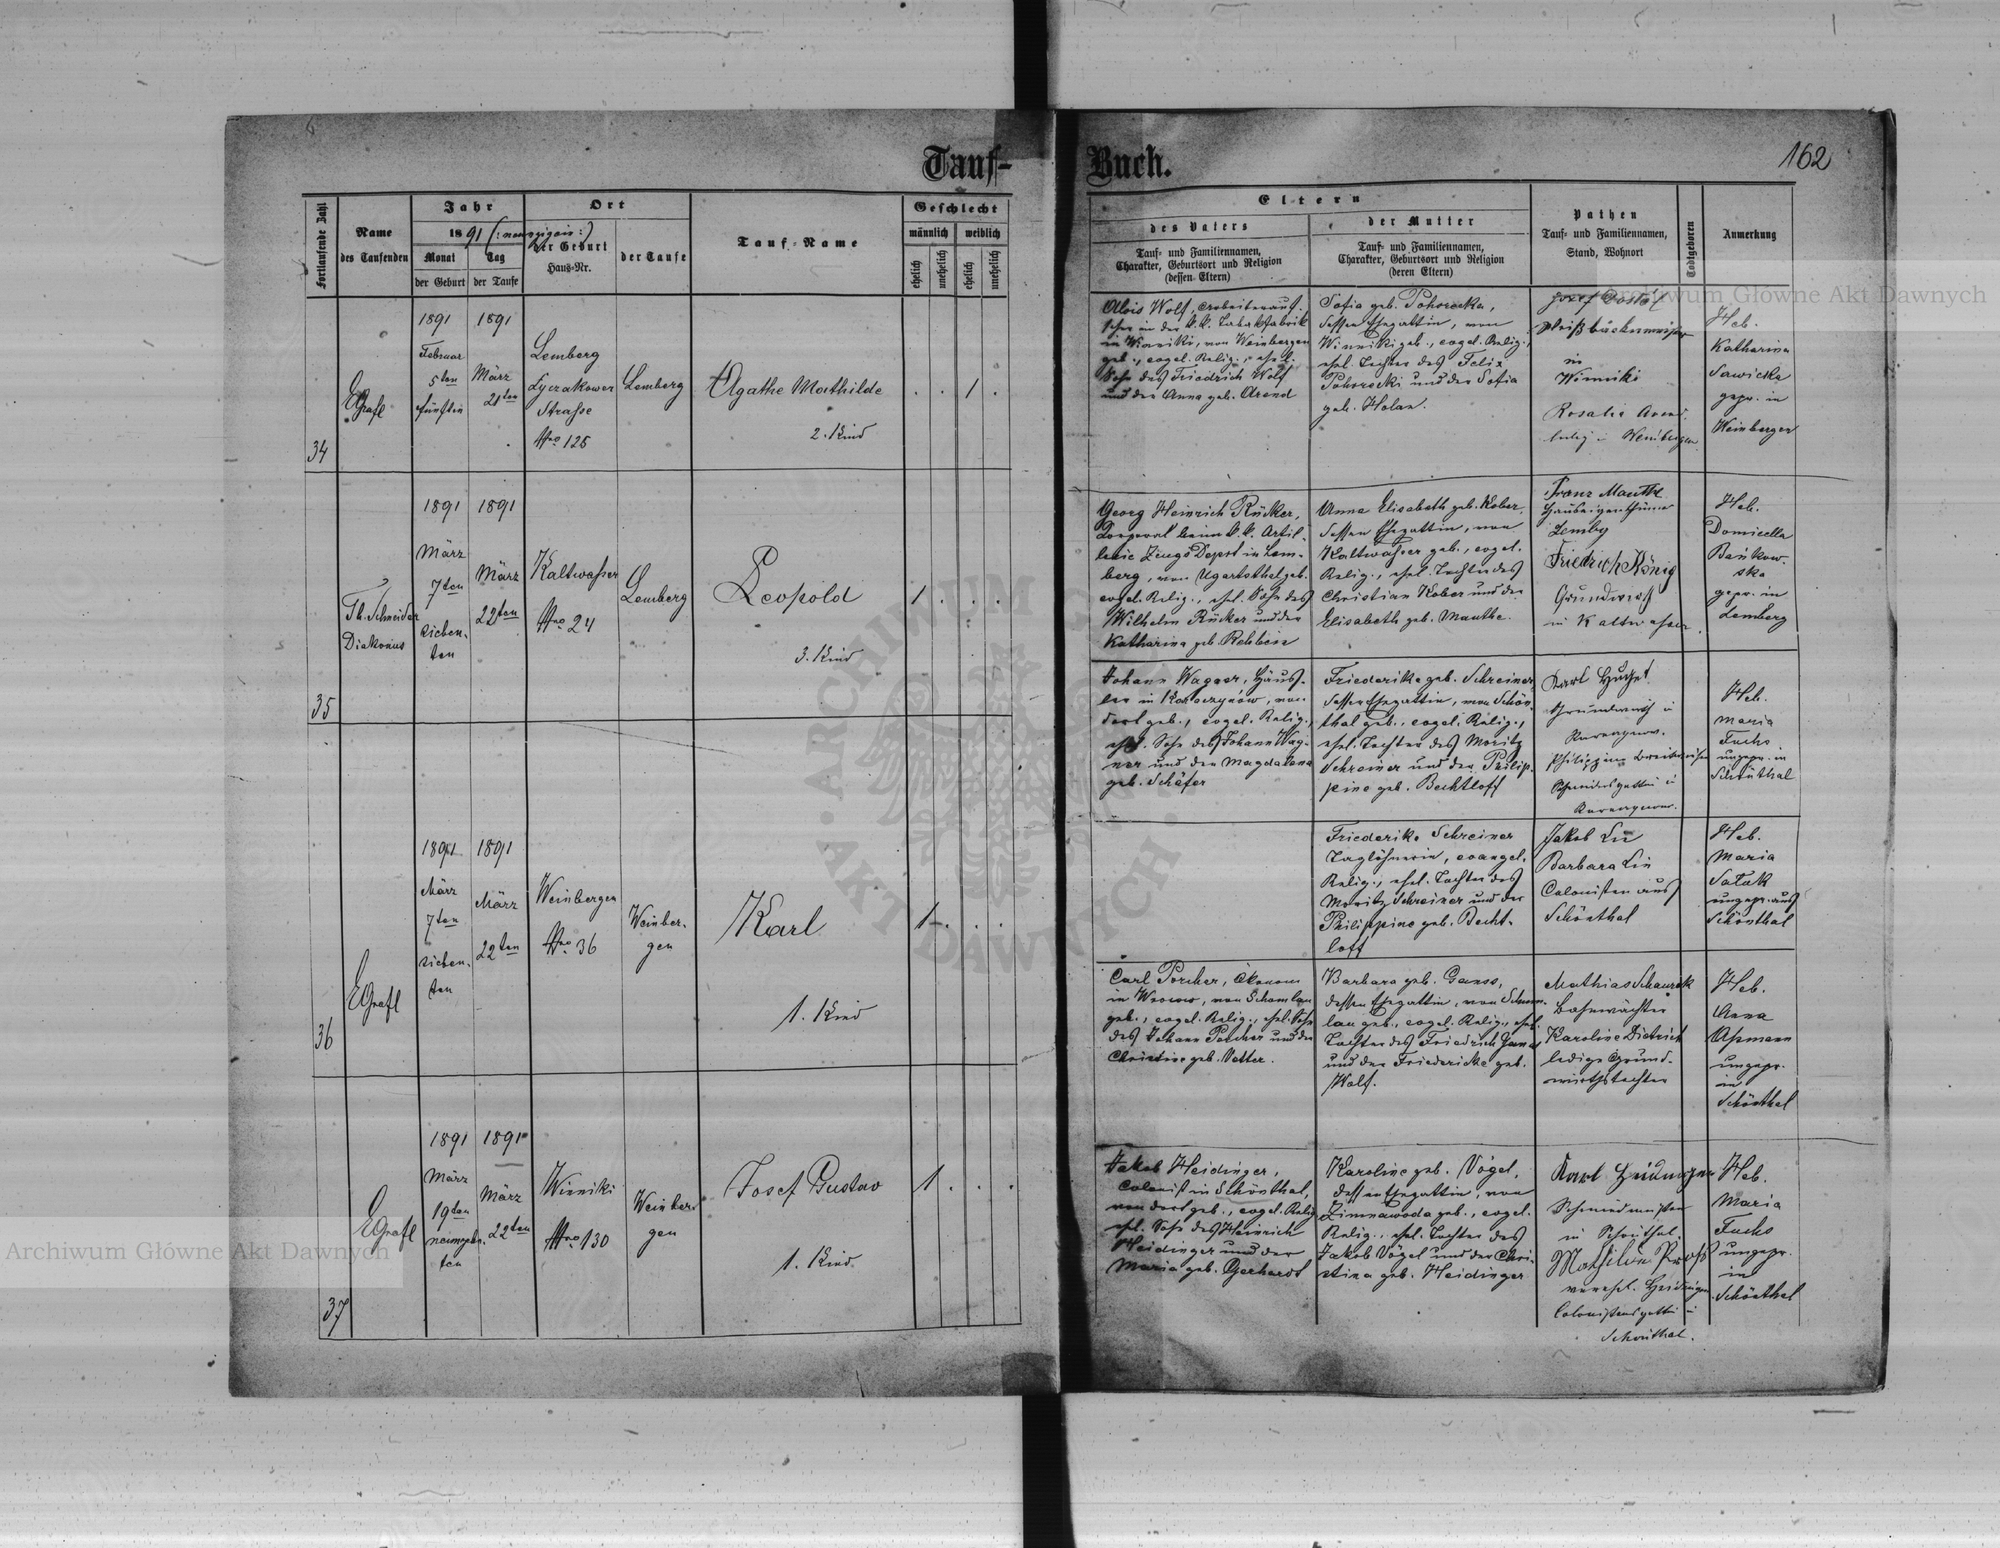 Tauf-
Fortlaufende Zahl
Name
des Taufenden
Jahr
1891 (: neunzigein :)
Monat
Tag
der Geburt
der Taufe
Ort
der Geburt
Haus-Nr.
der Taufe
Tauf-Name
Geschlecht
männlich
weiblich
ehelich
unehelich
ehelich
unehelich
34
EGrafl
1891
Februar
5ten
fünften
1891
März
21ten
Lemberg
Lyczakower
Strasse
Nro 125
Lemberg
Agathe Mathilde
2. Kind
1
35
Th. Schneider
Diakonus
1891
März
7ten
sieben-
ten
1891
März
22ten
Kaltwasser
Nro 24
Lemberg
Leopold
3. Kind
1
36
EGrafl
1891
März
7ten
sieben-
ten
1891
März
22ten
Weinbergen
Nro 36
Weinber-
gen
Karl
1. Kind
1
37
EGrafl
1891
März
19ten
neunzehn-
ten
1891
März
22ten
Winniki
Nro 130
Weinber-
gen
Josef Gustav
1. Kind
1
Buch.
162
Eltern
des Vaters
Tauf- und Familiennamen,
Charakter, Geburtsort und Religion
(dessen Eltern)
der Mutter
Tauf- und Familiennamen,
Charakter, Geburtsort und Religion
(deren Eltern)
Pathen
Tauf- und Familiennamen,
Stand, Wohnort
Todtgeboren
Anmerkung
Alois Wolf, Arbeiterauf-
seher in der k.k. Tabakfabrik
in Winniki, von Weinbergen
geb., evgel. Relig., ehel.
Sohn des Friedrich Wolf
und der Anna geb. Arend
Sofia geb. Pohorecka,
dessen Ehegattin, von
Winniki geb., evgel. Relig.,
ehel. Tochter des Felix
Pohorecki und der Sofia
geb. Holan.
Josef
Weißbäckermeister
in
Winniki
Rosalie Arend
ledig in Weinbergen
Heb.
Katharina
Sawicka
gepr. in
Weinbergen
Georg Heinrich Rücker,
Corporal beim k.k. Artil-
lerie Zeugs Depot in Lem-
berg, von Ugartsthal geb.
evgel. Relig., ehel. Sohn des
Wilhelm Rücker und der
Katharina geb. Rebbein
Anna Elisabeth geb. Kober,
dessen Ehegattin, von
Kaltwasser geb., evgel.
Relig., ehel. Tochter des
Christian Kober und der
Elisabeth geb. Manthe.
Franz Manthe
Hauseigenthümer
Lemberg
Friedrich König
Grundwirth
in Kaltwasser
Heb.
Domicella
Bańkow-
ska
gepr. in
Lemberg
Johann Wagner, Häus-
ler in Kurowice, von
dort geb., evgel. Relig.,
ehel. Sohn des Johann Wag-
ner und der Magdalena
geb. Schäfer
Friederike geb. Schreiner,
dessen Ehegattin, von Schön-
thal geb., evgel. Relig.,
ehel. Tochter des Moritz
Schreiner und der Philip-
pine geb. Bechtloff
Karl
Grundwirth in
Philippine
Heb.
Maria
Fuchs
ungepr. in
Schönthal
Friederike Schreiner
Taglöhnerin, evangel.
Relig., ehel. Tochter des
Moritz Schreiner und der
Philippine geb. Becht-
loff
Jakob Lin
Barbara Lin
Colonisten aus
Schönthal
Heb.
Maria
Satak
ungepr. aus
Schönthal
Carl Porcher, Ökonom
in Wrocow, von Schomlau
geb., evgel. Relig., ehel. Sohn
des Johann Porcher und der
Christine geb. Vetter.
Barbara geb. Ganss,
dessen Ehegattin, von Schum-
lau geb., evgel. Relig., ehel.
Tochter des Friedrich Ganss
und der Friedericke geb.
Wolf.
Mathias Schanzek
Bahnwächter
Karoline Dietrich
ledige Grund-
wirthstochter
Heb.
Anna
Apmann
ungepr.
in
Schönthal
Jakob Heidinger,
Colonist in Schönthal,
von dort geb., evgel. Relig.
ehel. Sohn des Heinrich
Heidinger und der
Maria geb. Gerhardt
Karoline geb. Vögel,
dessen Ehegattin, von
Zimnawoda geb., evgel.
Relig., ehel. Tochter des
Jakob Vögel und der Chri-
stina geb. Heidinger
Karl Heidinger
Schmiedmeister
in Schönthal.
Mathilde
verehl. Heidinger
Colonistensgattin in
Schönthal.
Heb.
Maria
Fuchs
ungepr.
in
Schönthal
Archiwum Główne Akt Dawnych
Archiwum Główne Akt Dawnych
ARCHIWUM
AKT DAWNYCH